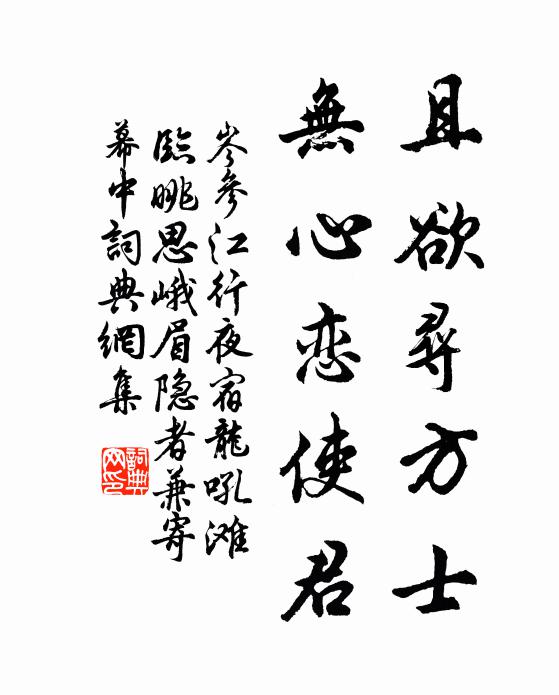 且欲尋方士
無心恋使君
岑參江行夜宿龍吼滩
臨眺思峨眉隐者兼寄
幕中詞典網集
詞典網印